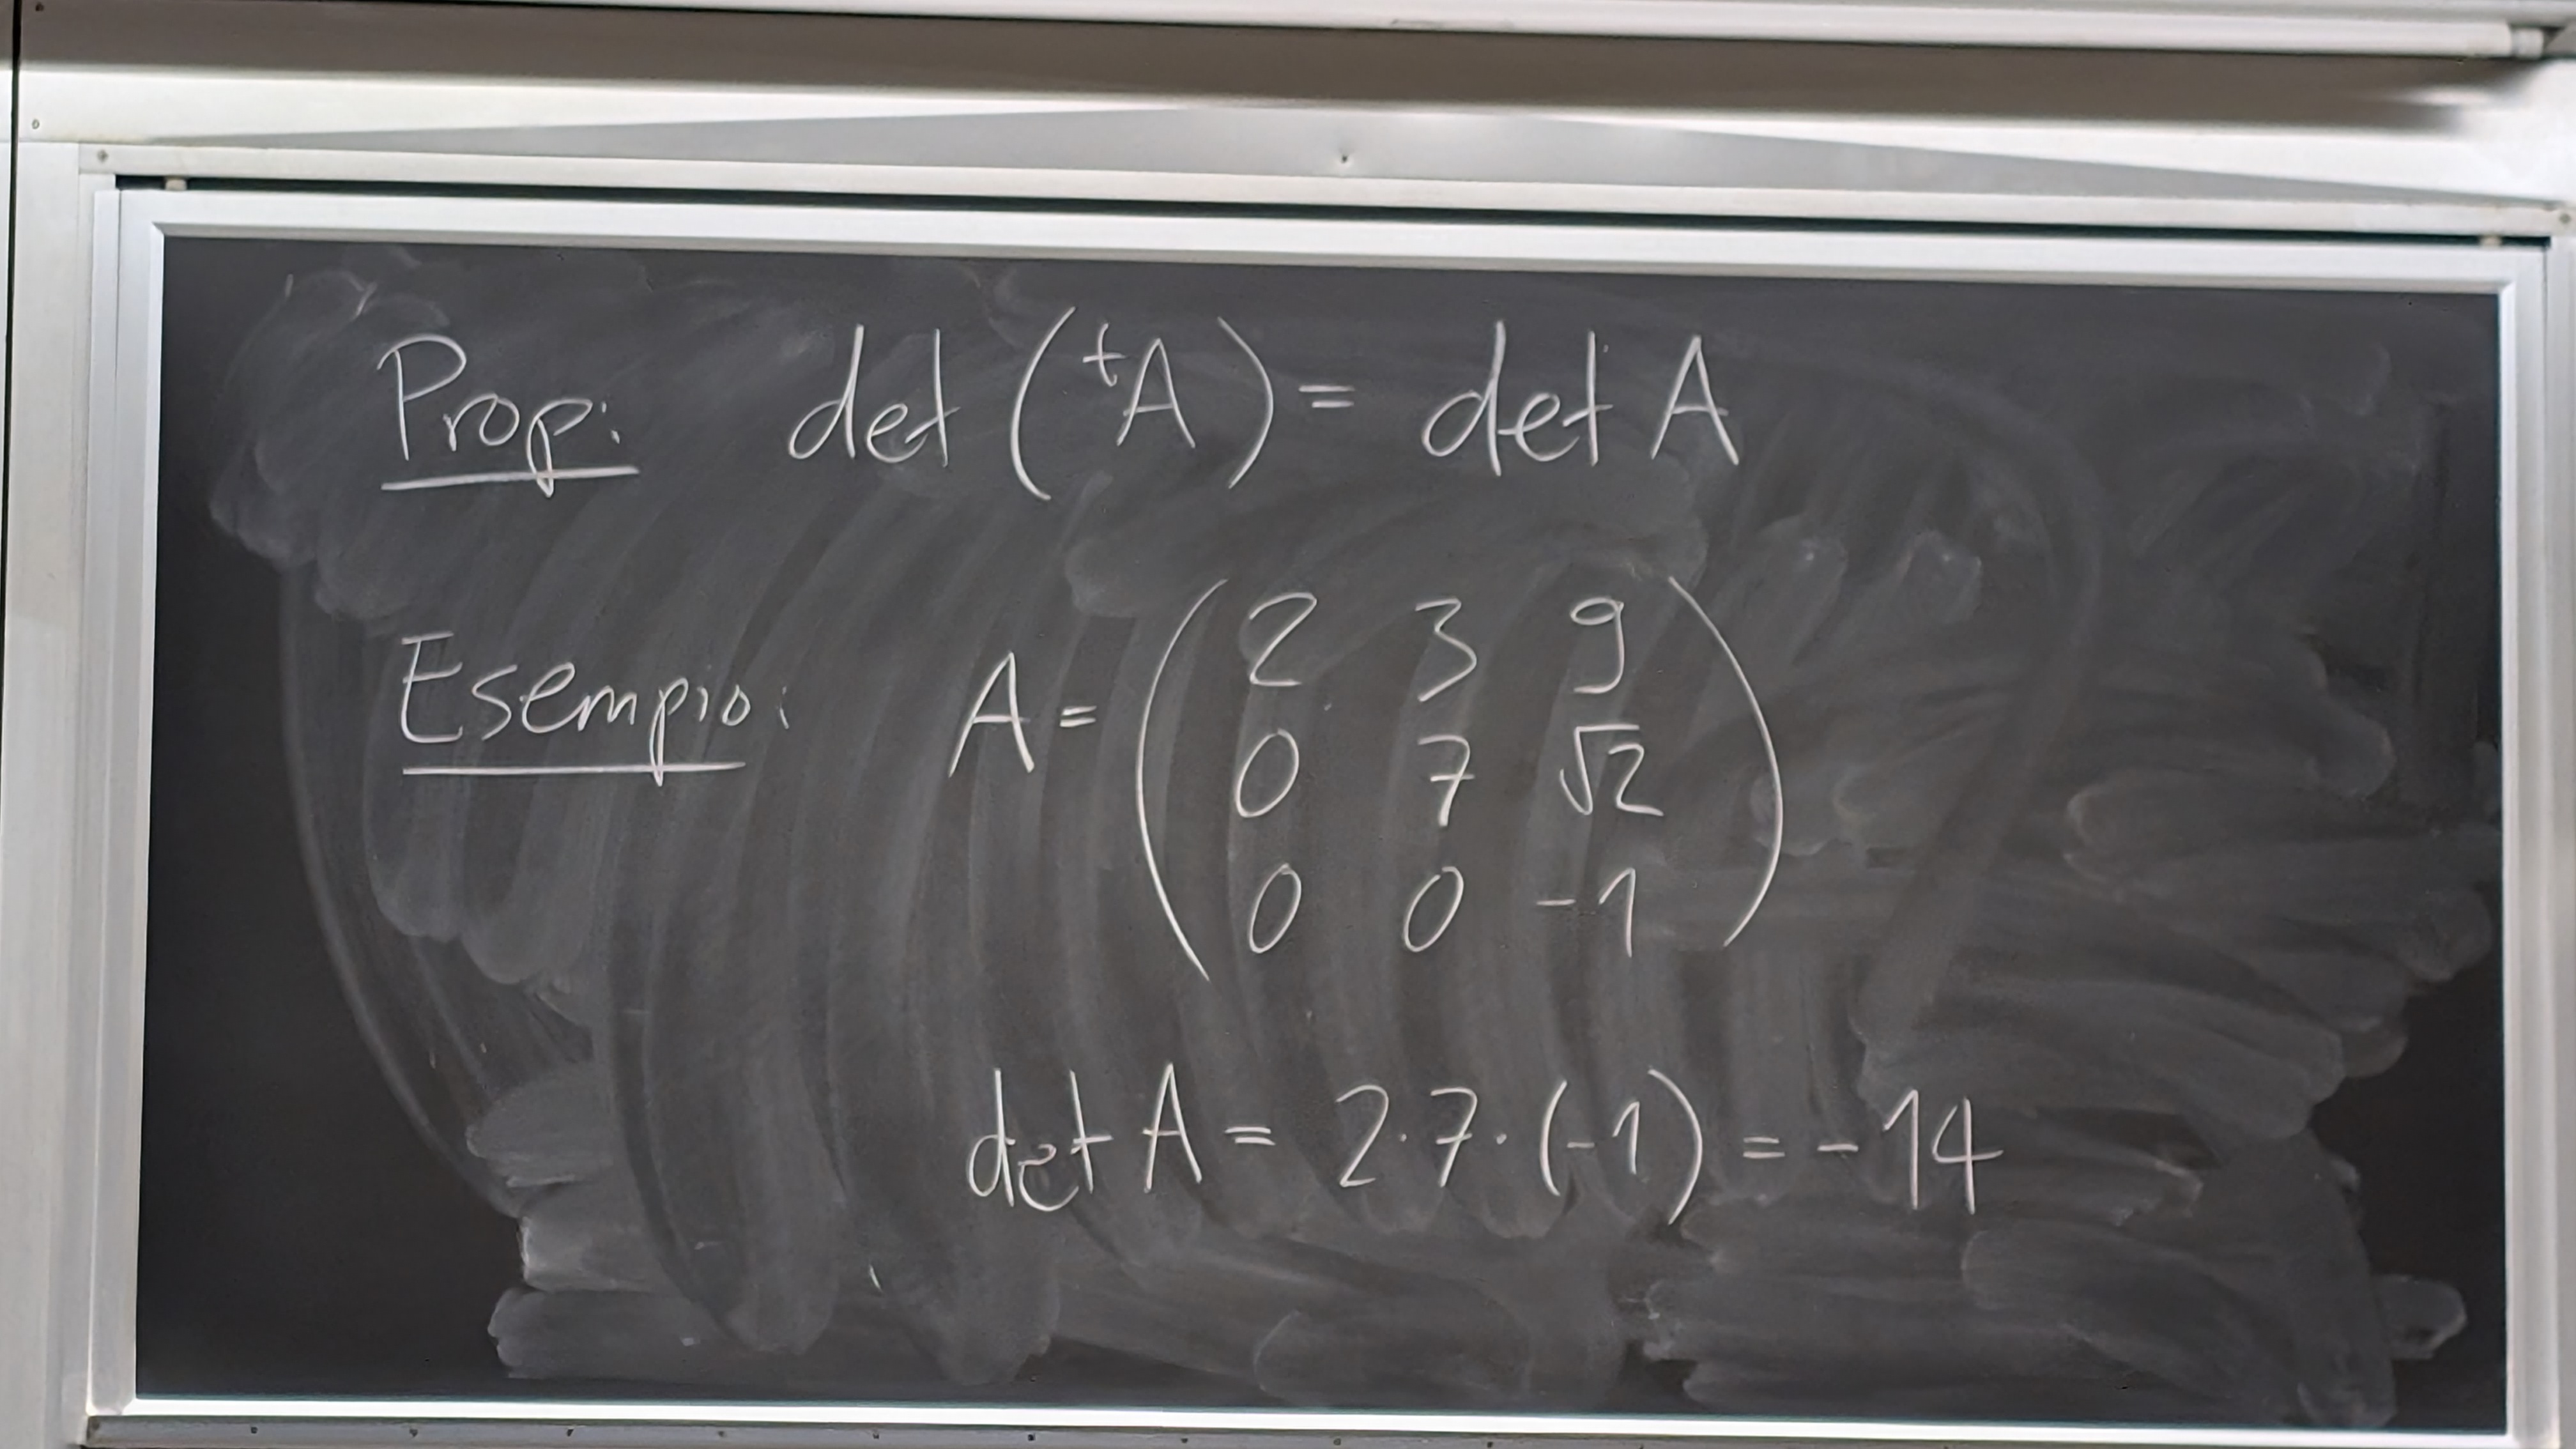 Prop: det (ᵗA) = det A
Esempio: A = ( 2 3 9
0 7 √2
0 0 -1 )
det A = 2·7·(-1) = -14